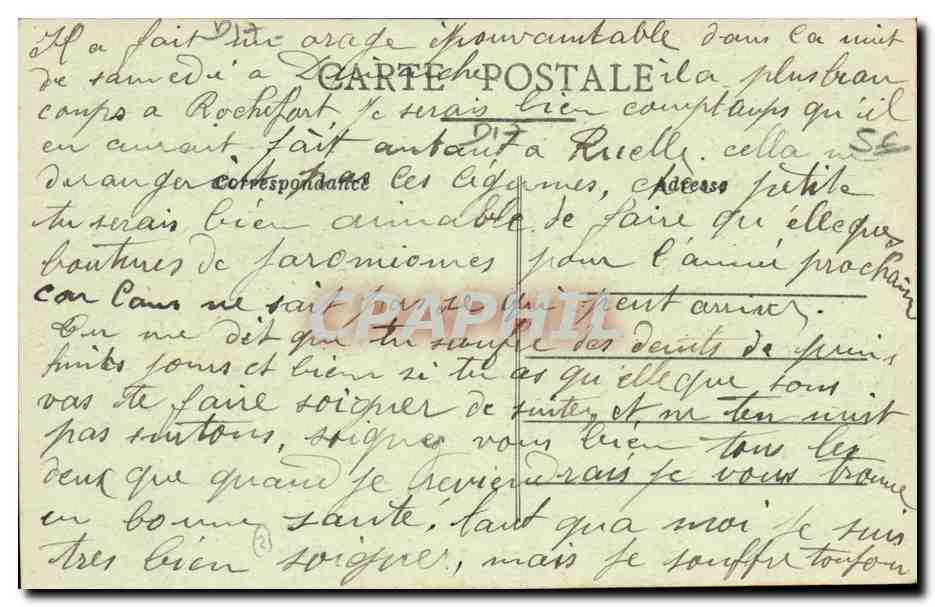 Il a fait un orage épouvantable dans la nuit
de samedi a Dimanche il a plus beau
CARTE POSTALE
coups a Rochefort. je serais bien comptemps qu'il
en aurait fait autant a Ruelle. cella ne
D17
D17
SC
deranger pas les légumes, chere petite
Correspondance
Adresse
tu serais bien aimable de faire qu'élleques
boutures de jaromiomes pour l'année prochaine
car l'ons ne sait pas se qui peut arriver.
On me dit que tu soufre des dents de puis
huits jours et bien si tu as qu'elleque sous
vas te faire soigner de suite, et ne ten nuit
pas surtous, soignez vous bien tous les
deux que quand je reviendrais je vous trouve
en bonne santé. tant qua moi je suis
(2)
tres bien soigner, mais je souffre toujour
CPAPHIL